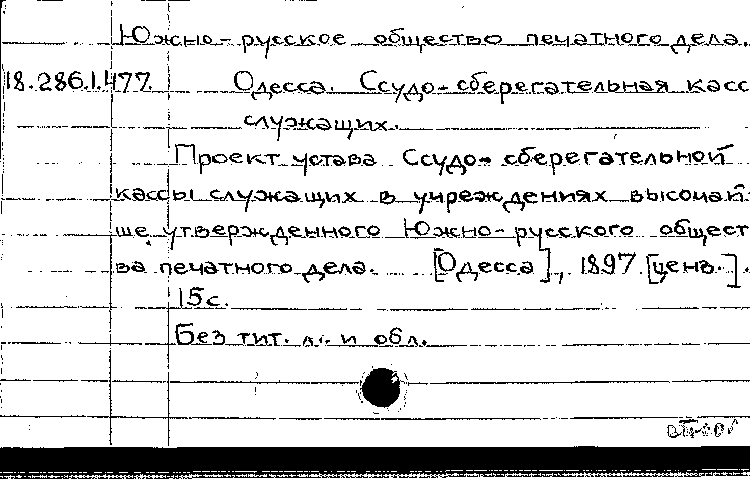 Южно-русское общество печатного дела.
18.286.1.477. Одесса. Ссудо-сберегательная касс
служащих.
Проект устава Ссудо-сберегательной
кассы служащих в учреждениях высочай
ше утвержденного Южно-русского общест
ва печатного дела. [Одесса], 1897 [ценз.].
15с.
Без тит. л. и обл.